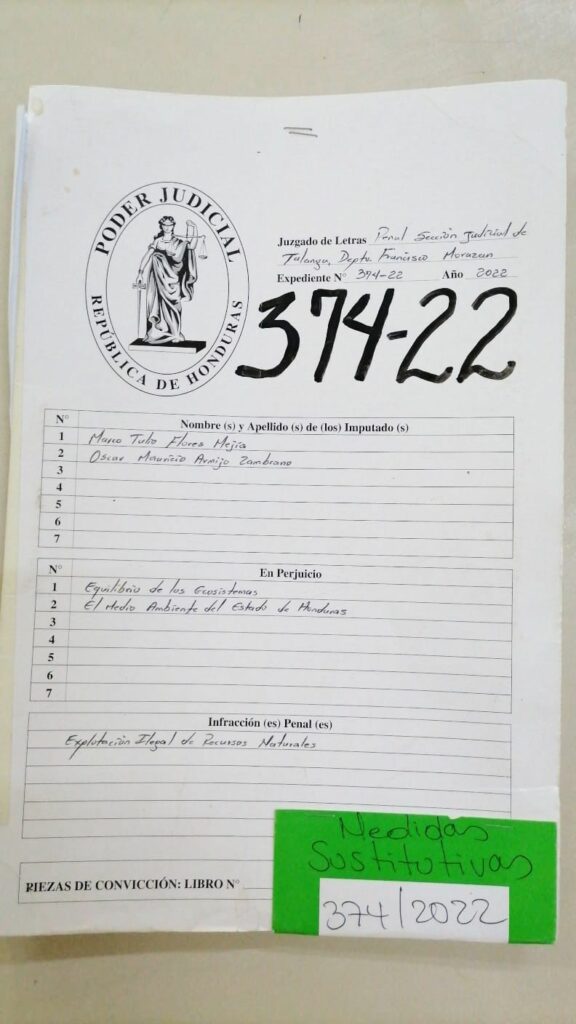 PODER JUDICIAL
REPÚBLICA DE HONDURAS
Juzgado de Letras Penal Sección Judicial de
Talanga, Depto. Francisco Morazan
Expediente N° 374-22 Año 2022
374-22
N° Nombre (s) y Apellido (s) de (los) Imputado (s)
1 Marco Tulio Flores Mejía
2 Oscar Mauricio Armijo Zambrano
3
4
5
6
7
N° En Perjuicio
1 Equilibrio de los Ecosistemas
2 El Medio Ambiente del Estado de Honduras
3
4
5
6
7
Infracción (es) Penal (es)
Explotación Ilegal de Recursos Naturales
Medidas
Sustitutivas
PIEZAS DE CONVICCIÓN: LIBRO N°
374/2022